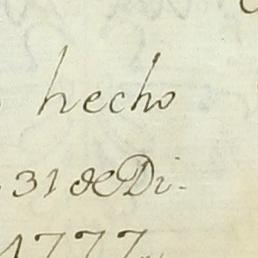 hecho
31 de Di-
1777